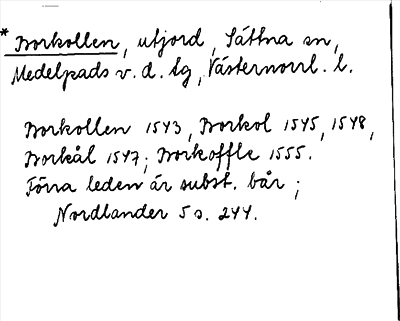 * Borkollen, utjord, Sättna sn,
Medelpads v. d. lg, Västernorrl. l.
Borkollen 1543, Borkol 1545, 1548,
Borkål 1547; Borkoffle 1555.
Förra leden är subst. bår;
Nordlander 5 s. 244.